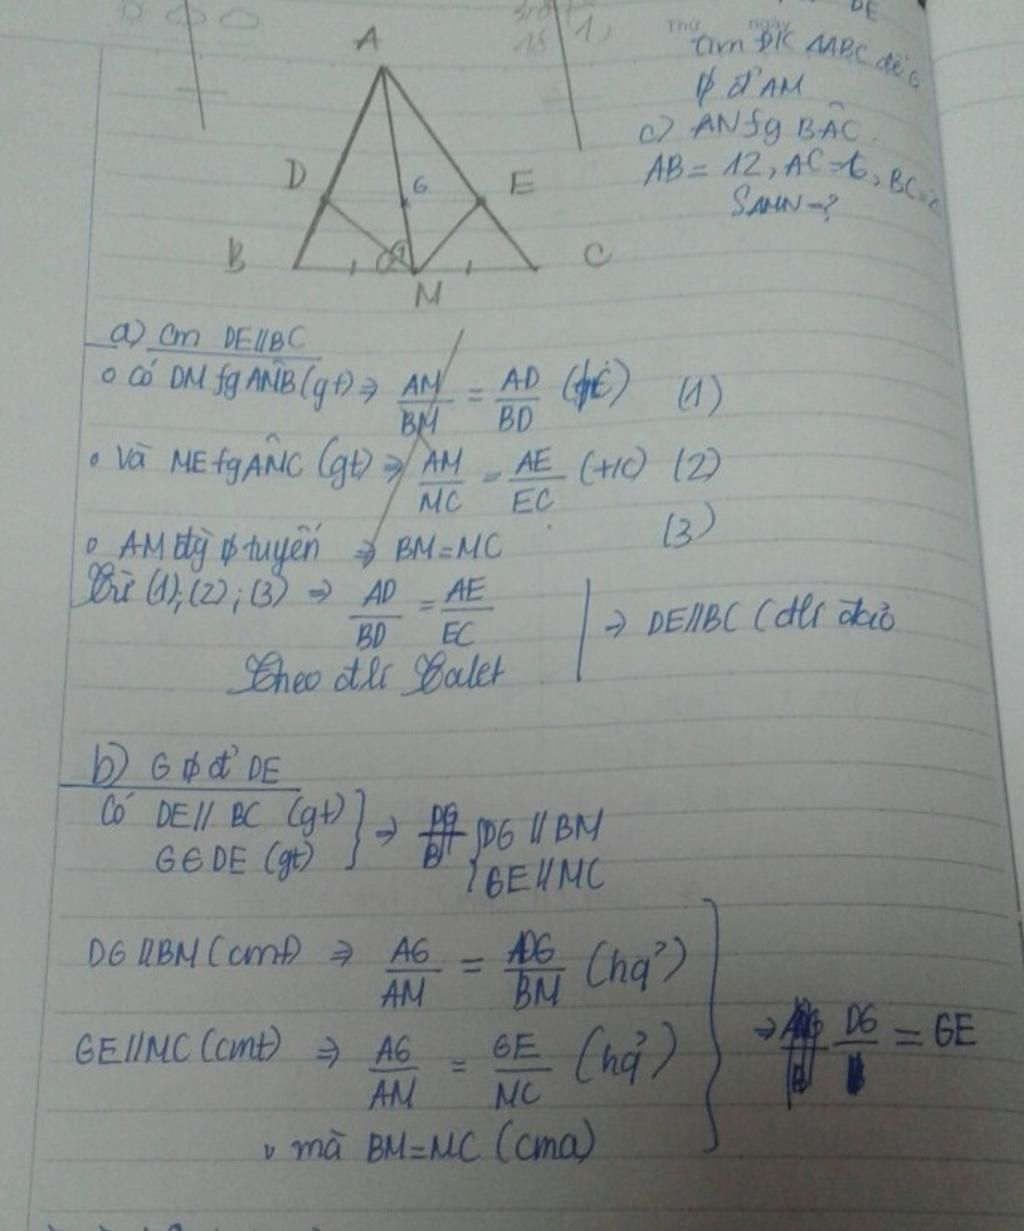 DE
Thứ ngày
tìm ĐK ΔABC để G
ϕ đ' AM
c) AN fg BÂC.
AB = 12, AC=6, BC=
SAMN=?
A
D G E
B C
M
a) cm DE//BC
o Có DM fg AM̂B (gt) ⇒ AM/BM = AD/BD (1)
• Và ME fg AM̂C (gt) ⇒ AM/MC = AE/EC (t/c) (2)
o AM ϕ tuyến ⇒ BM=MC (3)
Từ (1);(2);(3) ⇒ AD/BD = AE/EC
⇒ DE//BC (đlí đảo
Theo đlí Talet
b) G ϕ đ' DE
Có DE // BC (gt)
G∈DE (gt)
⇒ { DG // BM
GE // MC
DG // BM (cmt) ⇒ AG/AM = DG/BM (hq')
GE//MC (cmt) ⇒ AG/AM = GE/MC (hq')
⇒ DG = GE
mà BM=MC (cma)